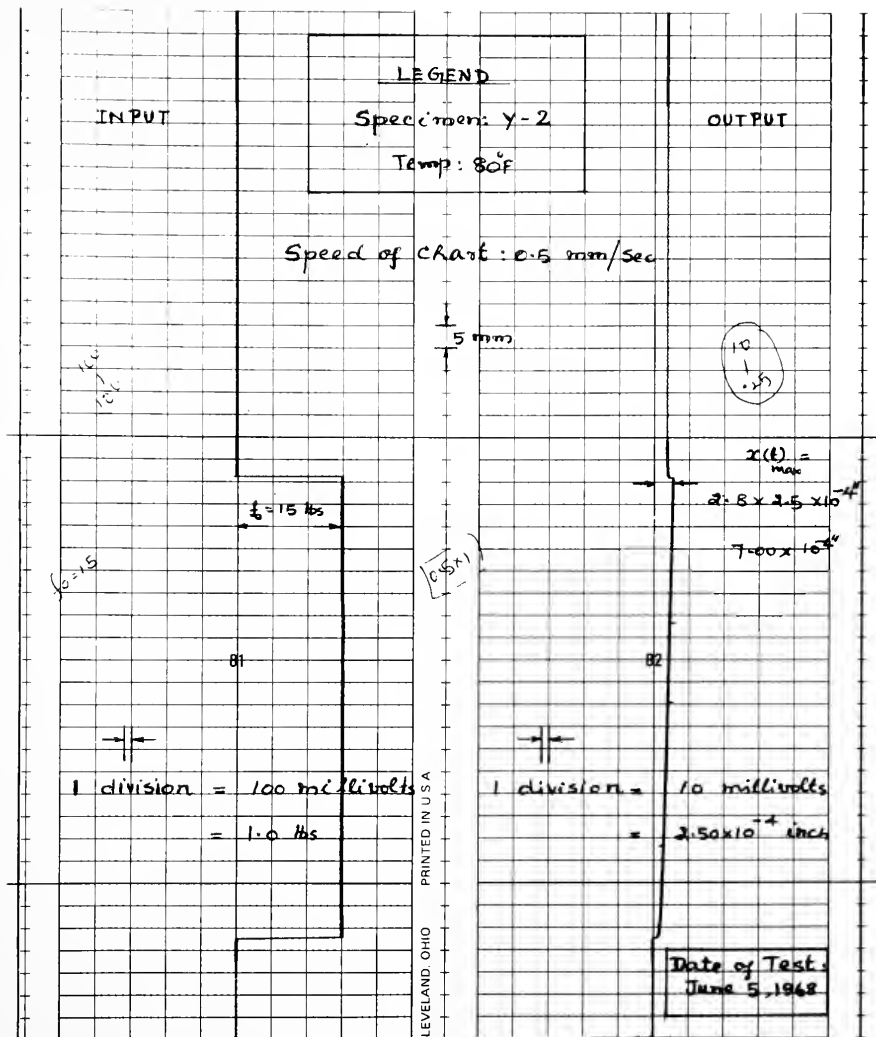 LEGEND
INPUT
Specimen: Y-2
OUTPUT
Temp: 80°F
Speed of chart : 0.5 mm/sec
5 mm
10
.25
x(t) max =
2.8 x 2.5 x10-4"
7.00 x 10-4"
f0 = 15 lbs
f0=15
0.5x1
81
82
1 division = 100 millivolts
= 1.0 lbs
1 division = 10 millivolts
= 2.50x10-4 inch
PRINTED IN USA
LEVELAND, OHIO
Date of Test:
June 5, 1968